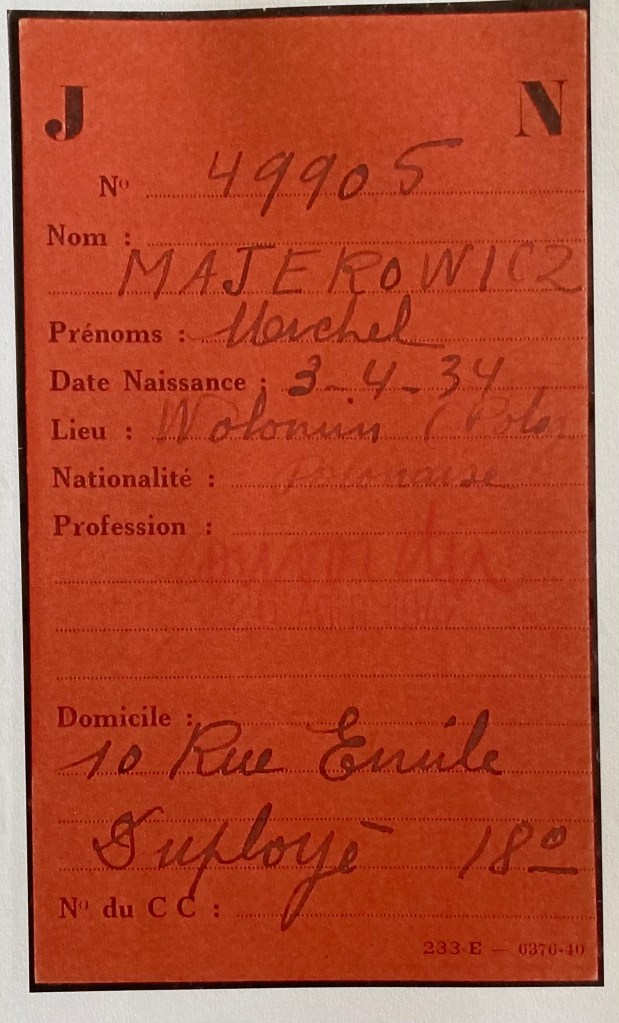 J N
Nº 49905
Nom :
MAJEROWICZ
Prénoms : Michel
Date Naissance : 3-4-34
Lieu : Wolomin (Polog
Nationalité : Polonaise
Profession :
Domicile :
10 Rue Emile
Duployé 18º
Nº du C C :
233-E — 6376-40